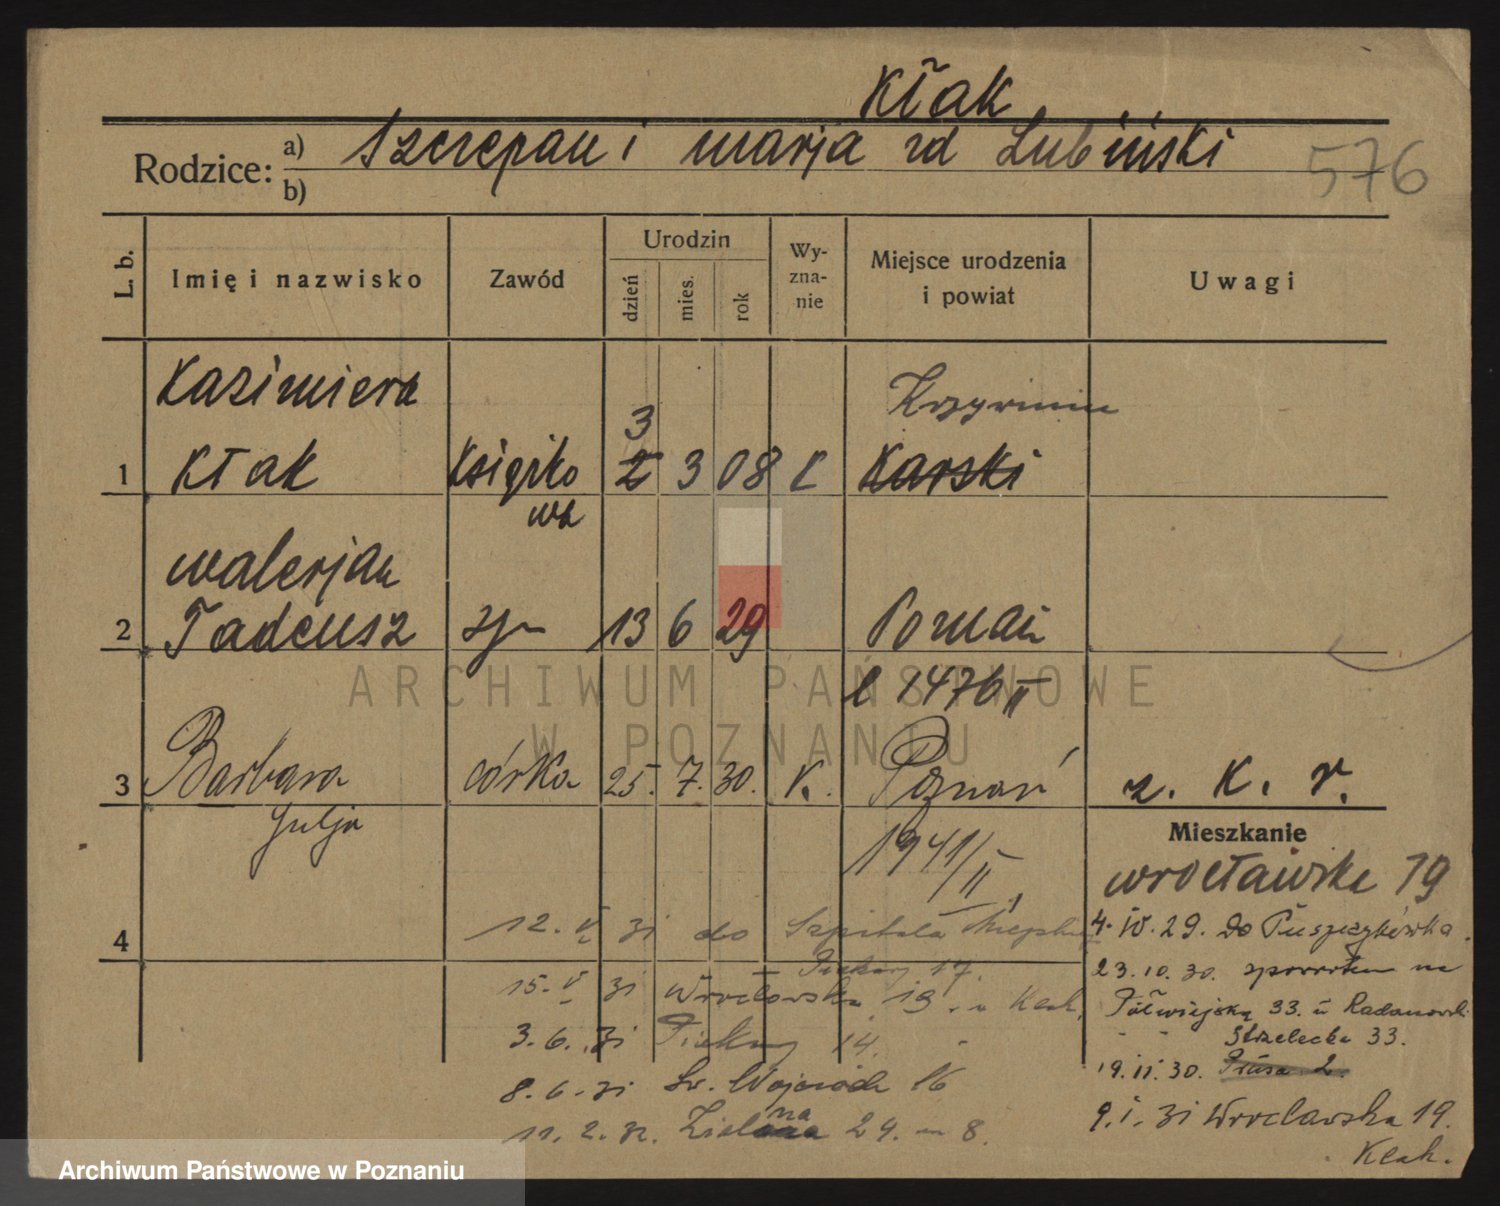 Kłak
Rodzice: a) Szczepan i marja zd Lubiński
b)
576
L. b.
Imię i nazwisko
Zawód
Urodzin
dzień
mies.
rok
Wy-
zna-
nie
Miejsce urodzenia
i powiat
Uwagi
Kazimiera
3
Krzywiniu
1 Kłak Książko 2 3 08 K Karski
wa
walerjan
2 Tadeusz syn 13 6 29 Poznań
l 1476 II
3 Barbara córka 25. 7. 30. K. Poznań z. K. r.
Julja
1941/II
Mieszkanie
wrocławska 19
4
12. V 31 do Szpitala Miejskiego
4. IV. 29. do Puszczykówka.
Piekary 17.
23.10.30. zpowrotem na
15. V 31 Wrocławska 19. u Kłak.
Półwiejską 33. u Radanowski
3.6.31 Piekary 14.
Strzelecka 33.
19.11.30. Prusa 2.
8.6.31 Św. Wojciech 16
9.1.31 Wrocławska 19.
11.2.32. Zielona 24. m 8.
na
Kłak.
ARCHIWUM PAŃSTWOWE
W POZNANIU
Archiwum Państwowe w Poznaniu